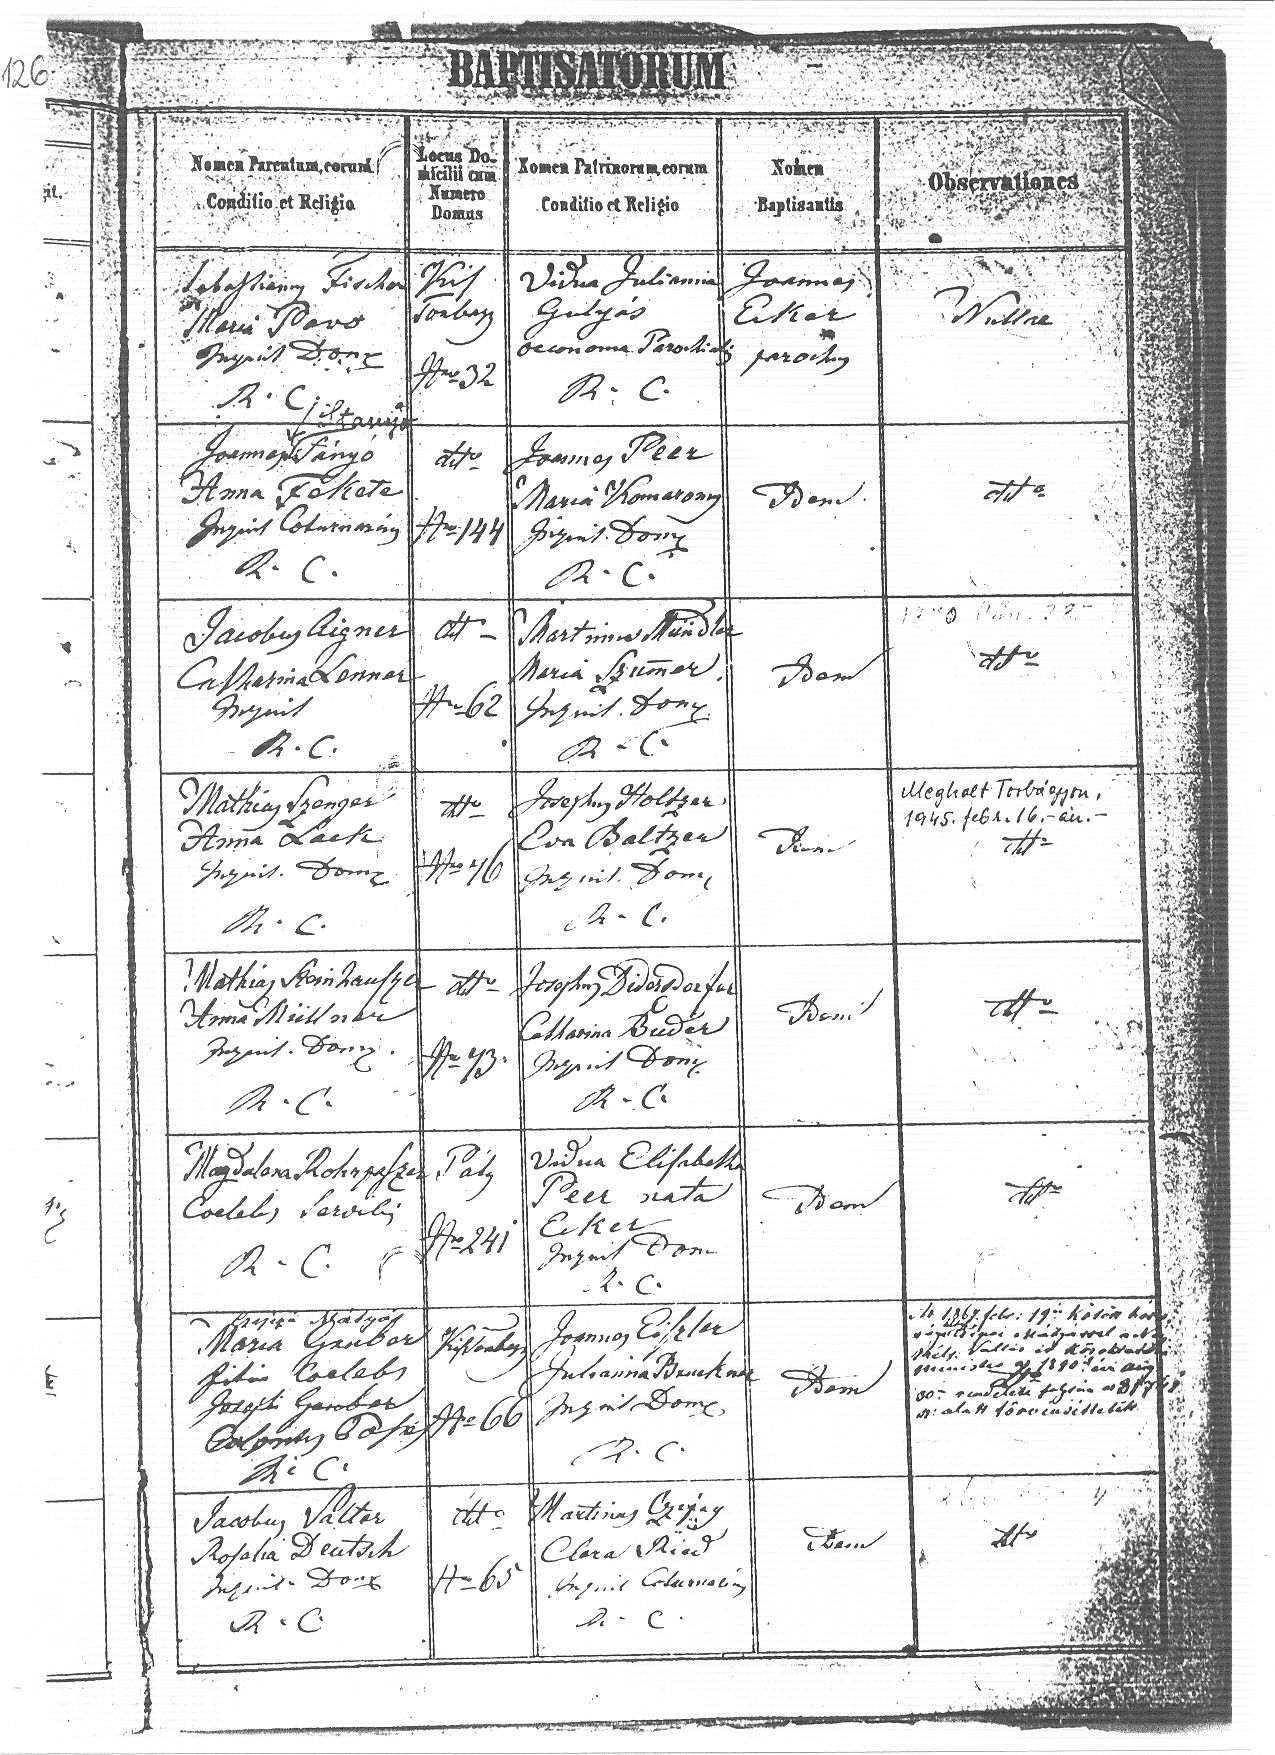 126
BAPTISATORUM
Nomen Parentum, eorum
Conditio et Religio
Locus Do-
micilii cum
Numero
Domus
Nomen Patrinorum, eorum
Conditio et Religio
Nomen
Baptisantis
Observationes
Sebastianus Fischer
Maria Pavo
Inquil Domz
R. C.
Kis
Torbágy
Nro 32
Vidua Julianna
Gulyás
oeconoma Parochialis
R. C.
Joannes
Ecker
parochus
Nullae
Joannes Fányó
Anna Fekete
Inquil Coturnarius
R. C.
dtto
Nro 144
Joannes Peer
Maria Komaromy
Inquil. Domz
R. C.
Idem
dtto
Jacobus Aigner
Catharina Lenner
Inquil
R. C.
dtto
Nro 62
Martinus Mündler
Maria Szummer
Inquil. Domz
R. C.
Idem
dtto
Mathias Szenger
Anna Lack
Inquil. Domz
R. C.
dtto
Nro 76
Josephus Holtzer
Eva Baltzer
Inquil. Domz
R. C.
Idem
Meghalt Torbágyon,
1945. febr. 16.-án.-
dtto
Mathias Steinhauszer
Anna Meillner
Inquil. Domz.
R. C.
dtto
Nro 73.
Josephus Didersdorfer
Catharina Buder
Inquil Domz
R. C.
Idem
dtto
Magdalena Rohrpaszer
Coelebs Servilis
R. C.
Páty
Nro 241
Vidua Elisabetha
Peer nata
Ecker
Inquil Dom
R. C.
Idem
dtto
Maria Gruber
filia Coelebs
Josephi Gruber
R. C.
Kistorbágy
Nro 66
Joannes Eiszler
Julianna Bruckner
Inquil Domz
R. C.
Idem
Az 1867 febr: 19én
Vallás és Közoktatási
minister 1890 évi aug
Jacobus Valter
Rosalia Deutsch
Inquil. Domz
R. C.
dtto
Nro 65
Martinus
Clara Ried
Inquil Coturnarius
R. C.
Idem
dtto